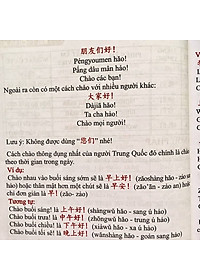 朋友们好！
Péngyoumen hǎo!
Pấng dâu mân hảo!
Chào các bạn!
Ngoài ra còn có một cách chào với nhiều người khác:
大家好！
Dàjiā hǎo!
Ta cha hảo!
Chào mọi người!
Lưu ý: Không được dùng "您们" nhé!
Cách chào thông dụng nhất của người Trung Quốc đó chính là chào
theo thời gian trong ngày.
Ví dụ:
Chào nhau vào buổi sáng sớm sẽ là 早上好！(zǎoshàng hǎo - zảo sang
hảo) hoặc thân mật hơn một chút sẽ là 早安！(zǎo'ān - zảo an) hoặc
chỉ đơn giản là 早！(zǎo - zảo)
Tương tự:
Chào buổi sáng! là 上午好！(shàngwǔ hǎo - sang ủ hảo)
Chào buổi trưa! là 中午好！(zhōngwǔ hǎo - trung ủ hảo)
Chào buổi chiều! là 下午好！(xiàwǔ hǎo - xia ủ hảo)
Chào buổi tối! sẽ là 晚上好！(wǎnshàng hǎo - goản sang hảo)